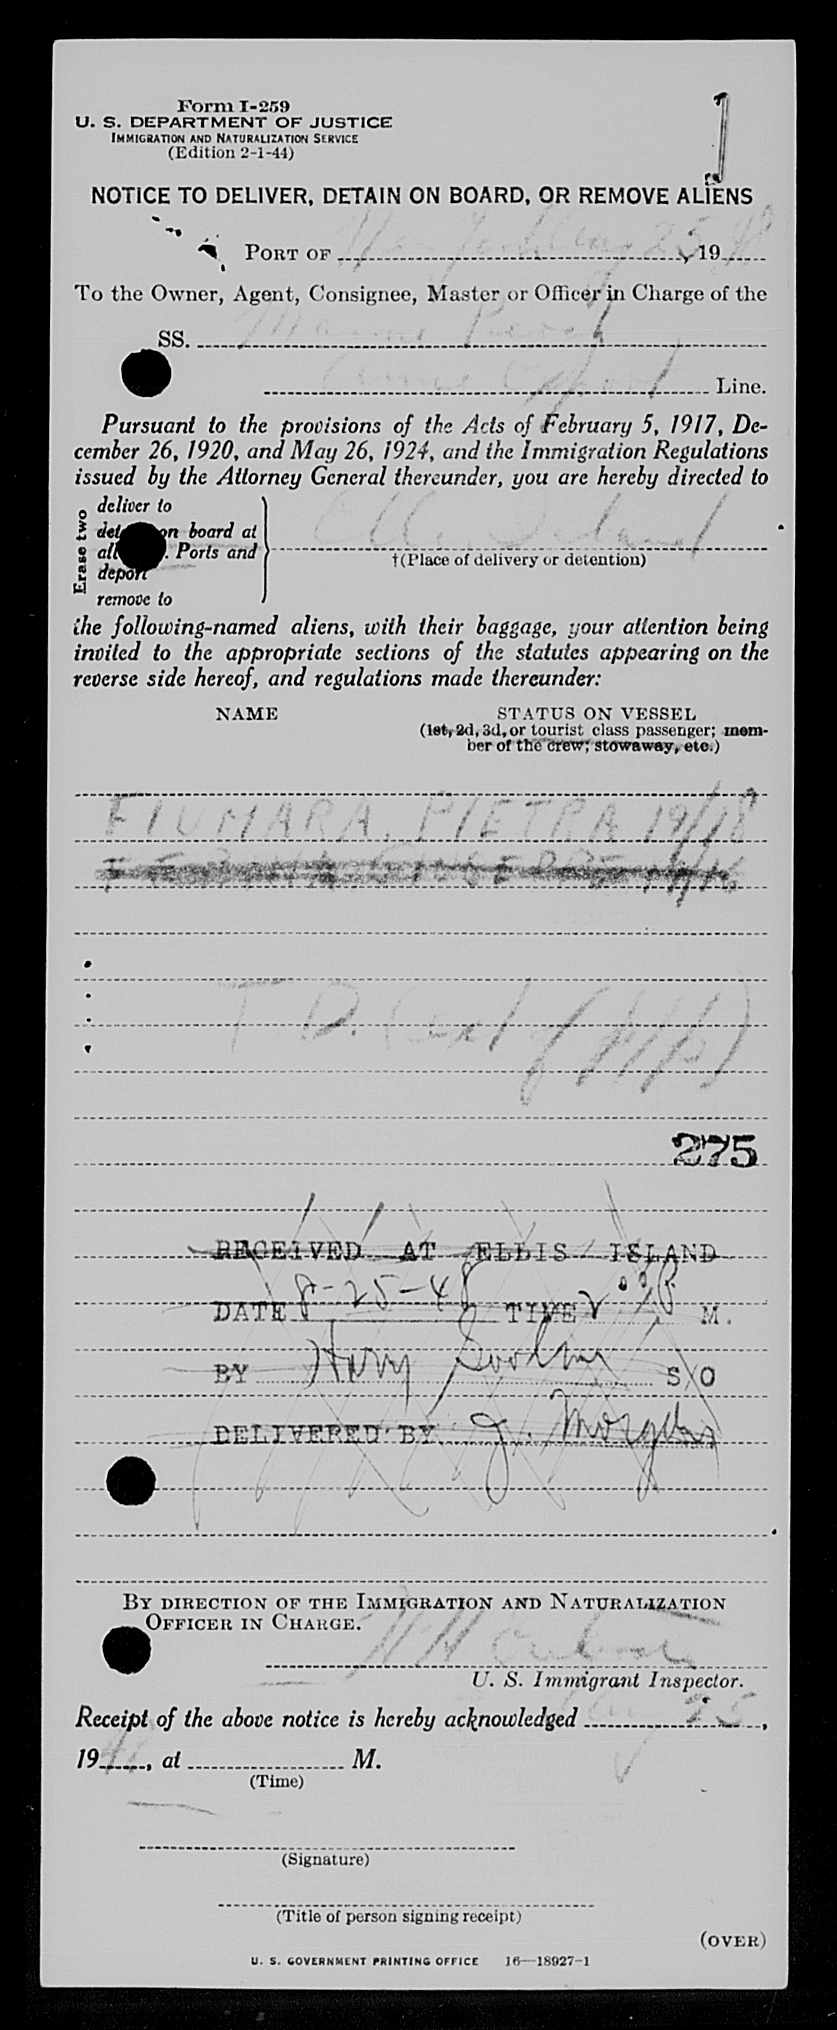 Form I-259
U. S. DEPARTMENT OF JUSTICE
IMMIGRATION AND NATURALIZATION SERVICE
(Edition 2-1-44)
NOTICE TO DELIVER, DETAIN ON BOARD, OR REMOVE ALIENS
PORT OF New York Aug 25, 1948
To the Owner, Agent, Consignee, Master or Officer in Charge of the
SS. Marine Perch
Line.
Pursuant to the provisions of the Acts of February 5, 1917, De-
cember 26, 1920, and May 26, 1924, and the Immigration Regulations
issued by the Attorney General thereunder, you are hereby directed to
Erase two
deliver to
on board at
Ports and
deport
remove to
Ellis Island
†(Place of delivery or detention)
the following-named aliens, with their baggage, your attention being
invited to the appropriate sections of the statutes appearing on the
reverse side hereof, and regulations made thereunder:
NAME STATUS ON VESSEL
(1st, 2d, 3d, or tourist class passenger; mem-
ber of the crew; stowaway, etc.)
FIUMARA, PIETRA 19/18
T. D.
275
RECEIVED AT ELLIS ISLAND
DATE 8-25-48 TIME 2:00 P M.
BY Harry S O
DELIVERED BY J.
BY DIRECTION OF THE IMMIGRATION AND NATURALIZATION
OFFICER IN CHARGE.
U. S. Immigrant Inspector.
Receipt of the above notice is hereby acknowledged Aug 25,
1948, at M.
(Time)
(Signature)
(Title of person signing receipt)
(OVER)
U. S. GOVERNMENT PRINTING OFFICE 16—18927-1